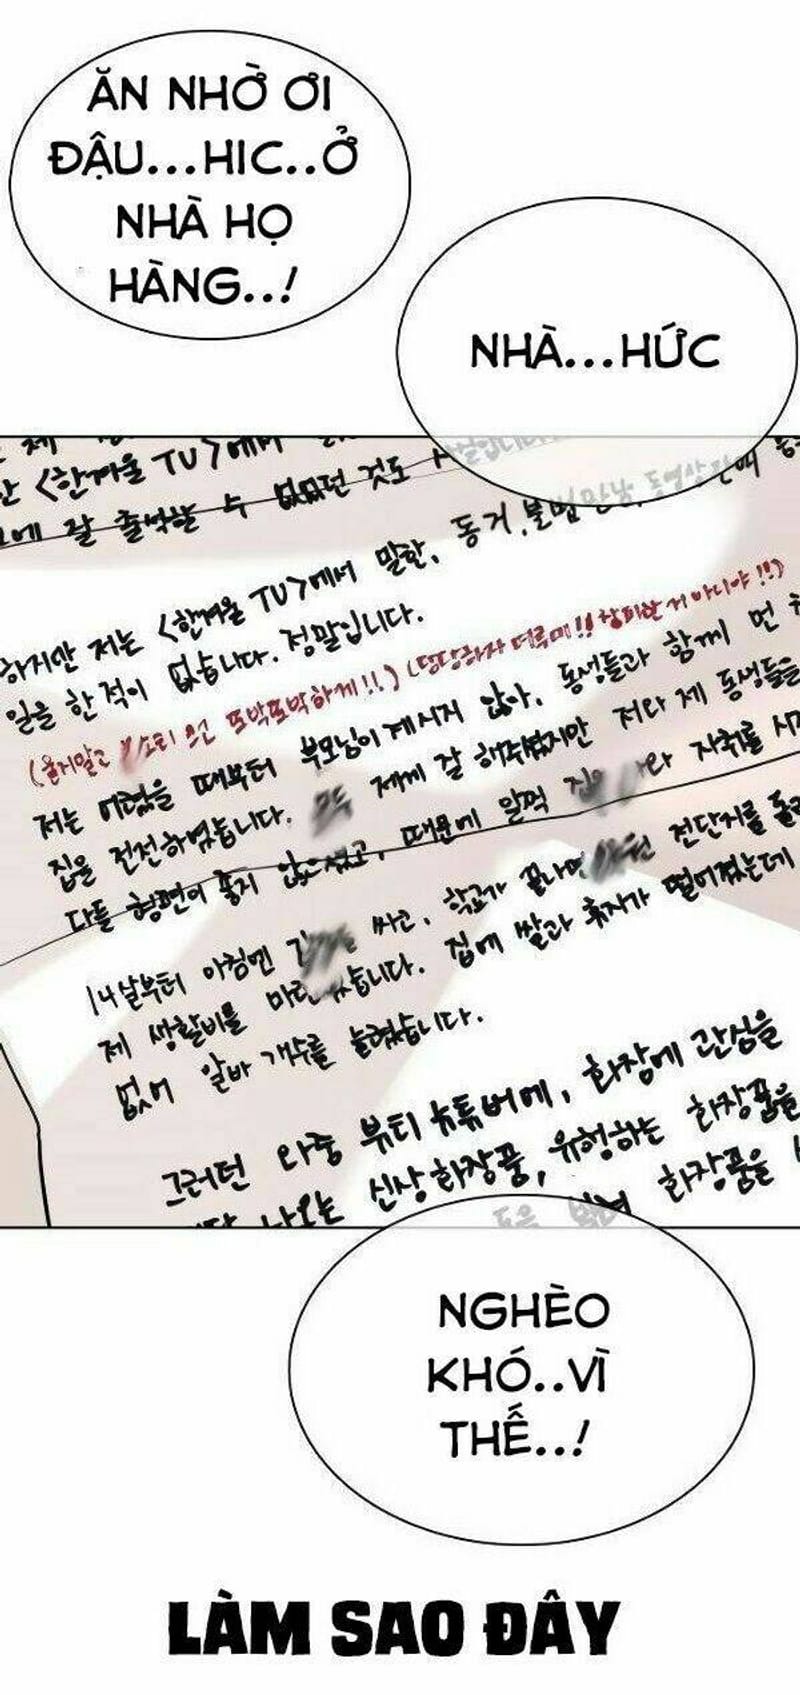 ĂN NHỜ ƠI
ĐẬU...HIC..Ở
NHÀ HỌ
HÀNG..!
NHÀ...HỨC
<한겨울 TV>에서
에 잘 출석할 수 없었던 것도
하지만 저는 <한겨울 TV>에서 말한, 동거, 불법만남, 동영상
일을 한 적이 없습니다. 정말입니다.
(울지말고 또박또박하게!!) (당당하자 더루미!! 창피한 거 아니야!!)
저는 어렸을 때부터 부모님이 계시지 않아, 동생들과 함께 먼
집을 전전하였습니다. 모두 제게 잘 해주셨지만 저와 제 동생들을
다들 형편이 좋지 않으셨고, 때문에 일찍 자취를
14살부터 아침엔 싸고, 학교가 끝나면 전단지를
제 생활비를 마련했습니다. 집에 쌀과 휴지가 떨어졌는데
없어 알바 개수를 늘렸습니다.
그러던 와중 뷰티 뉴튜버에, 화장에 관심을
나오는 신상화장품, 유행하는 화장품을
화장품을
NGHÈO
KHÓ..VÌ
THẾ..!
LÀM SAO ĐÂY